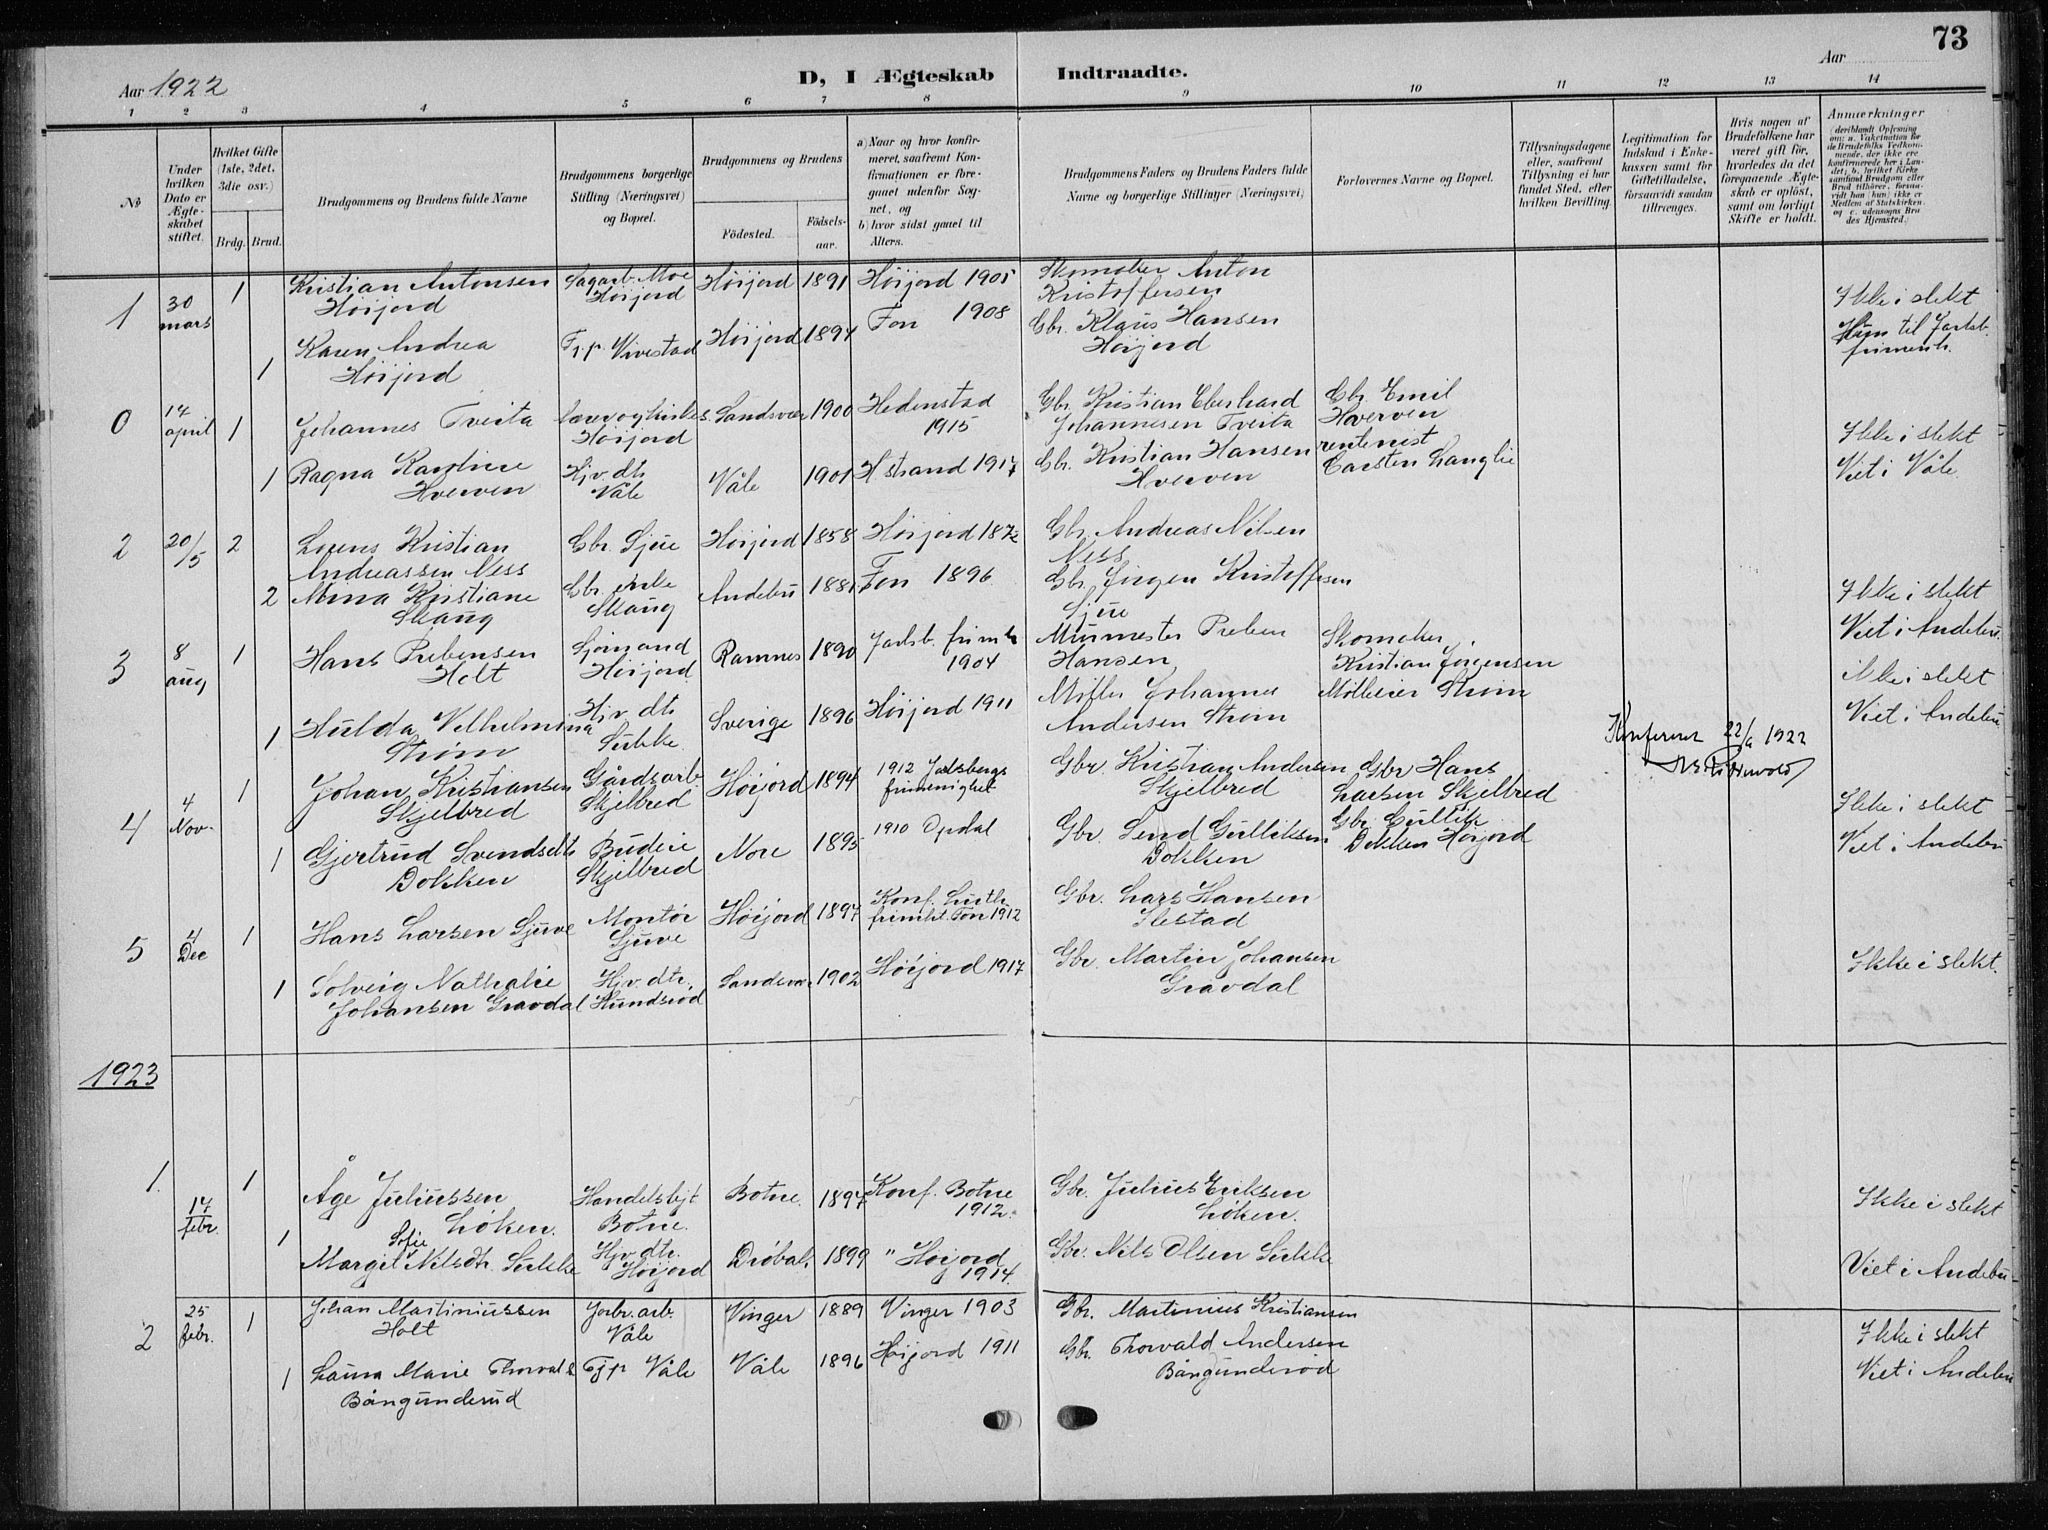 73
Aar 1922
D, I Ægteskab Indtraadte.
Aar
1 2 3 4 5 6 7 8 9 10 11 12 13 14
No
Under hvilken Dato er Ægteskabet stiftet.
Hvilket Gifte (1ste, 2det, 3die osv.)
Brdg. Brud.
Brudgommens og Brudens fulde Navne
Brudgommens borgerlige Stilling (Næringsvei) og Bopæl.
Brudgommens og Brudens
Födested.
Födselsaar.
a) Naar og hvor konfirmeret, saafremt Konfirmationen er foregaaet udenfor Sognet, og
b) hvor sidst gaaet til Alters.
Brudgommens Faders og Brudens Faders fulde Navne og borgerlige Stillinger (Næringsvei)
Forlovernes Navne og Bopæl.
Tillysningsdagene eller, saafremt Tillysning ei har fundet Sted, efter hvilken Bevilling.
Legitimation for Indskud i Enkekassen samt for Giftetilladelse, forsaavidt saadan tiltrænges.
Hvis nogen af Brudefolkene har været gift før, hvorledes da det foregaaende Ægteskab er oplöst, samt om lovligt Skifte er holdt.
Anmærkninger
1 30 mars 1 Kristian Antonsen Høijord Sagarb. Moe Høijord Høijord 1891 Høijord 1905 Skomaker Anton Kristoffersen Ikke i slekt
1 Karen Andrea Høijord Tj.p. Vivestad Høijord 1894 Fon 1908 Gbr. Klaus Hansen Høijord Hun til Jarlsb. frimenh.
0 14 april 1 Johannes Tveita Høijord Sandsvær 1900 Hedenstad 1915 Gbr. Kristian Eberhard Johannesen Tveita Gbr Emil Hverven Ikke i slekt
1 Ragna Kardine Hverven Hjv. dtr Våle Våle 1901 H strand 1917 Gbr. Kristian Hansen Hverven rentenist Carsten Langlie Viet i Våle.
2 20/5 2 Lorens Kristian Andreassen Ness Gbr. Gjeue Høijord 1858 Høijord 187 Gbr. Andreas Nilsen Ness
2 Mina Kristiane Skaug Gbr enke Skaug Andebu 1881 Fon 1896 Gbr. Jørgen Kristoffersen Gjeue Ikke i slekt Viet i Andebu.
3 8 aug 1 Hans Prebensen Holt Sjømand Høijord Ramnes 1890 Jarlsb. frimh 1904 Murmester Preben Hansen Skomaker Kristian Jørgensen ikke i slekt
1 Hulda Vilhelmina Strøm Hjv. dtr Sukke Sverige 1896 Høijord 1911 Møller Johannes Andersen Strøm Møllerier Strøm Viet i Andebu
Konfereret 22/ 1922
4 4 Nov. 1 Johan Kristiansen Skjelbred Gårdsarb. Skjelbred Høijord 1894 1912 Jarlsbergs frimenighet Gbr. Kristian Andersen Skjelbred Gbr Hans Larsen Skjelbred Ikke i slekt
1 Gjertrud Svendsdtr Dokken Budeie Skjelbred Nore 1895 1910 Opdal Gbr. Send Gulliksen Dokken Gbr. Gullik Dokken Høijord Viet i Andebu
5 4 Dec 1 Hans Larsen Gjuve Montør Gjuve Høijord 1897 Konf. Luth. frimht Fon 1912 Gbr. Lars Hansen Ilestad
1 Solveig Nathalie Johansen Gravdal Hjv. dtr. Hundsrød Sandsvær 1902 Høijord 1917 Gbr. Martin Johansen Gravdal Ikke i slekt.
1923
1. 17 febr. 1 Åge Juliussen Løken. Handelsbjt Botne. Botne. 1897 Konf. Botne 1912. Gbr. Julius Eriksen Løken. Ikke i slekt
1 Margit Sofie Nilsdtr. Sukke Hjv. dtr. Høijord Drøbak 1899 " Høijord 1914. Gbr. Nils Olsen Sukke Viet i Andebu
2 25 febr. 1 Johan Martiniussen Holt Jorbr. arb. Våle Vinger 1889 Vinger 1903 Gbr. Martinius Kristiansen Ikke i slekt
1 Laura Marie Thorvalds Bångunderud Tjp Våle Våle 1896 Høijord 1911 Gbr. Thorvald Andersen Bångunderød Viet i Andebu